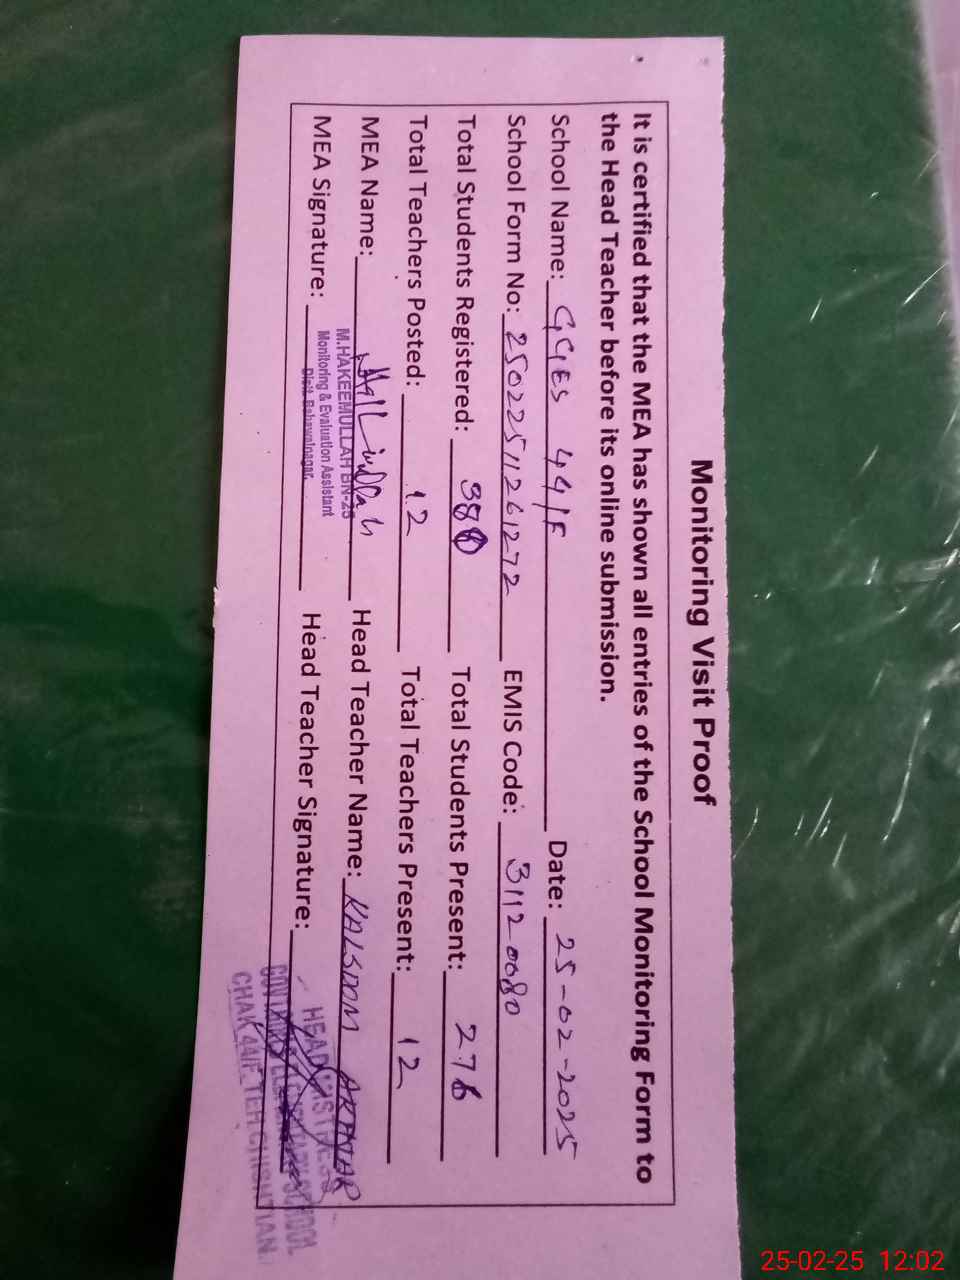 Monitoring Visit Proof
It is certified that the MEA has shown all entries of the School Monitoring Form to
the Head Teacher before its online submission.
School Name: GGES 44/F Date: 25-02-2025
School Form No: 25022511261272 EMIS Code: 31120080
Total Students Registered: 380 Total Students Present: 276
Total Teachers Posted: 12 Total Teachers Present: 12
MEA Name: Head Teacher Name: KALSOOM AKHTAR
M.HAKEEMULLAH BN-25
MEA Signature: Head Teacher Signature:
Monitoring & Evaluation Assistant
Distt. Bahawalnagar.
HEADMISTRESS
GOVT. GIRLS ELEMENTARY SCHOOL
CHAK 44/F TEH.CHISHTIAN.
25-02-25 12:02